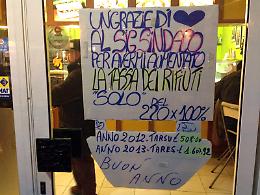 UN GRAZIE DI
AL SIG. SINDACO
PER AVERMI AUMENTATO
LA TASSA DEI RIFIUTI
"SOLO" DEL
220 X 100%
ANNO 2012 - TARSU €
ANNO 2013 - TARES €
BUON
ANNO